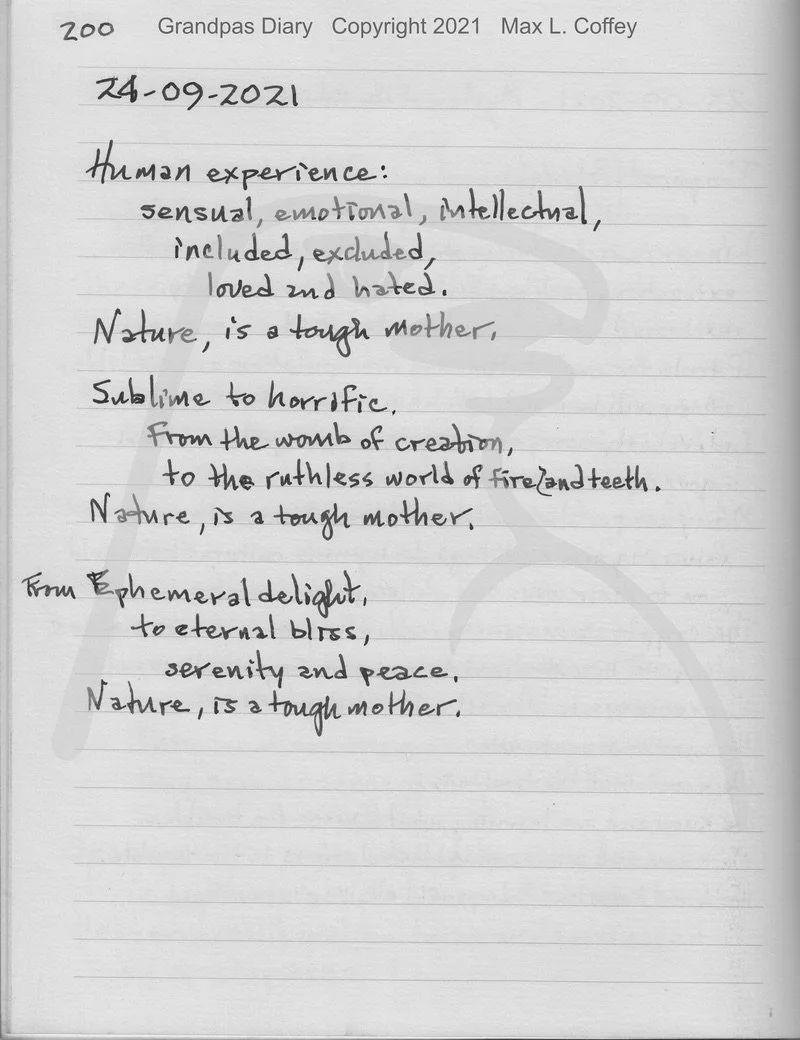 200 Grandpas Diary Copyright 2021 Max L. Coffey
24-09-2021
Human experience:
sensual, emotional, intellectual,
included, excluded,
loved and hated.
Nature, is a tough mother.
Sublime to horrific.
From the womb of creation,
to the ruthless world of fire and teeth.
Nature, is a tough mother.
From Ephemeral delight,
to eternal bliss,
serenity and peace.
Nature, is a tough mother.